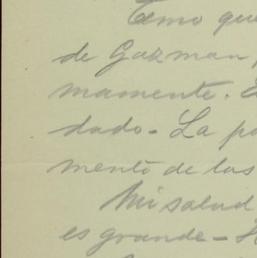 Temo que
de Gazman
mamente.
dado - La pa
mento de las
Mi salud
es grande -